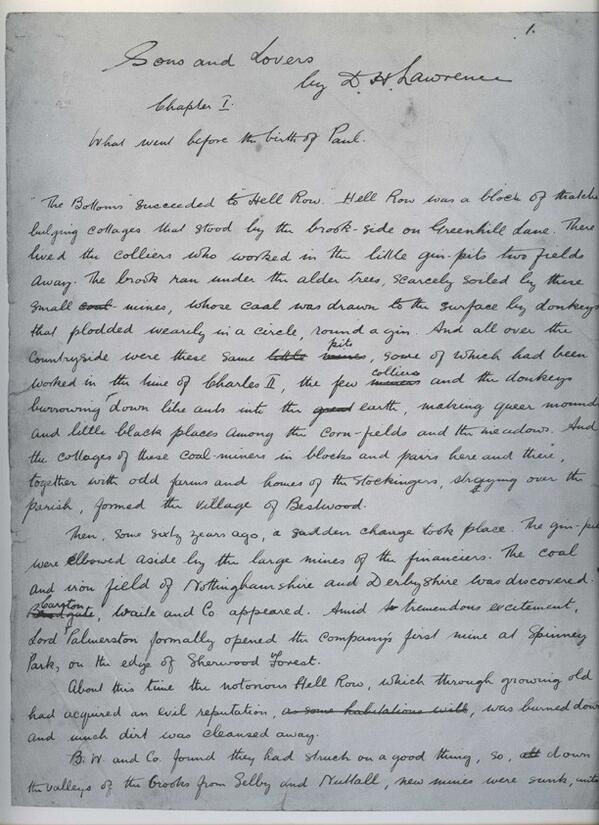 1.
Sons and Lovers
by D. H. Lawrence
Chapter I.
What went before the birth of Paul.
"The Bottoms" succeeded to "Hell Row". Hell Row was a block of thatche
bulging cottages that stood by the brook-side on Greenhill Lane. There
lived the colliers who worked in the little gin-pits two fields
away. The brook ran under the alder trees, scarcely soiled by these
small coal mines, whose coal was drawn to the surface by donkeys
that plodded wearily in a circle, round a gin. And all over the
pits
countryside were these same little mines, some of which had been
colliers
worked in the time of Charles II, the few miners and the donkeys
burrowing down like ants into the great earth, making queer mounds
and little black places among the corn-fields and the meadows. And
the cottages of these coal-miners in blocks and pairs here and there,
together with odd farms and homes of the stockingers, straying over the
parish, formed the village of Bestwood.
Then, some sixty years ago, a sudden change took place. The gin-pit
were elbowed aside by the large mines of the financiers. The coal
and iron field of Nottinghamshire and Derbyshire was discovered.
Carston
, Waite and Co. appeared. Amid tremendous excitement,
Lord Palmerston formally opened the company's first mine at Spinney
Park, on the edge of Sherwood Forest.
About this time the notorious Hell Row, which through growing old
had acquired an evil reputation, as some habitations will, was burned down
and much dirt was cleansed away.
B. W. and Co. found they had struck on a good thing, so, all down
the valleys of the brooks from Selby and Nuttall, new mines were sunk, until